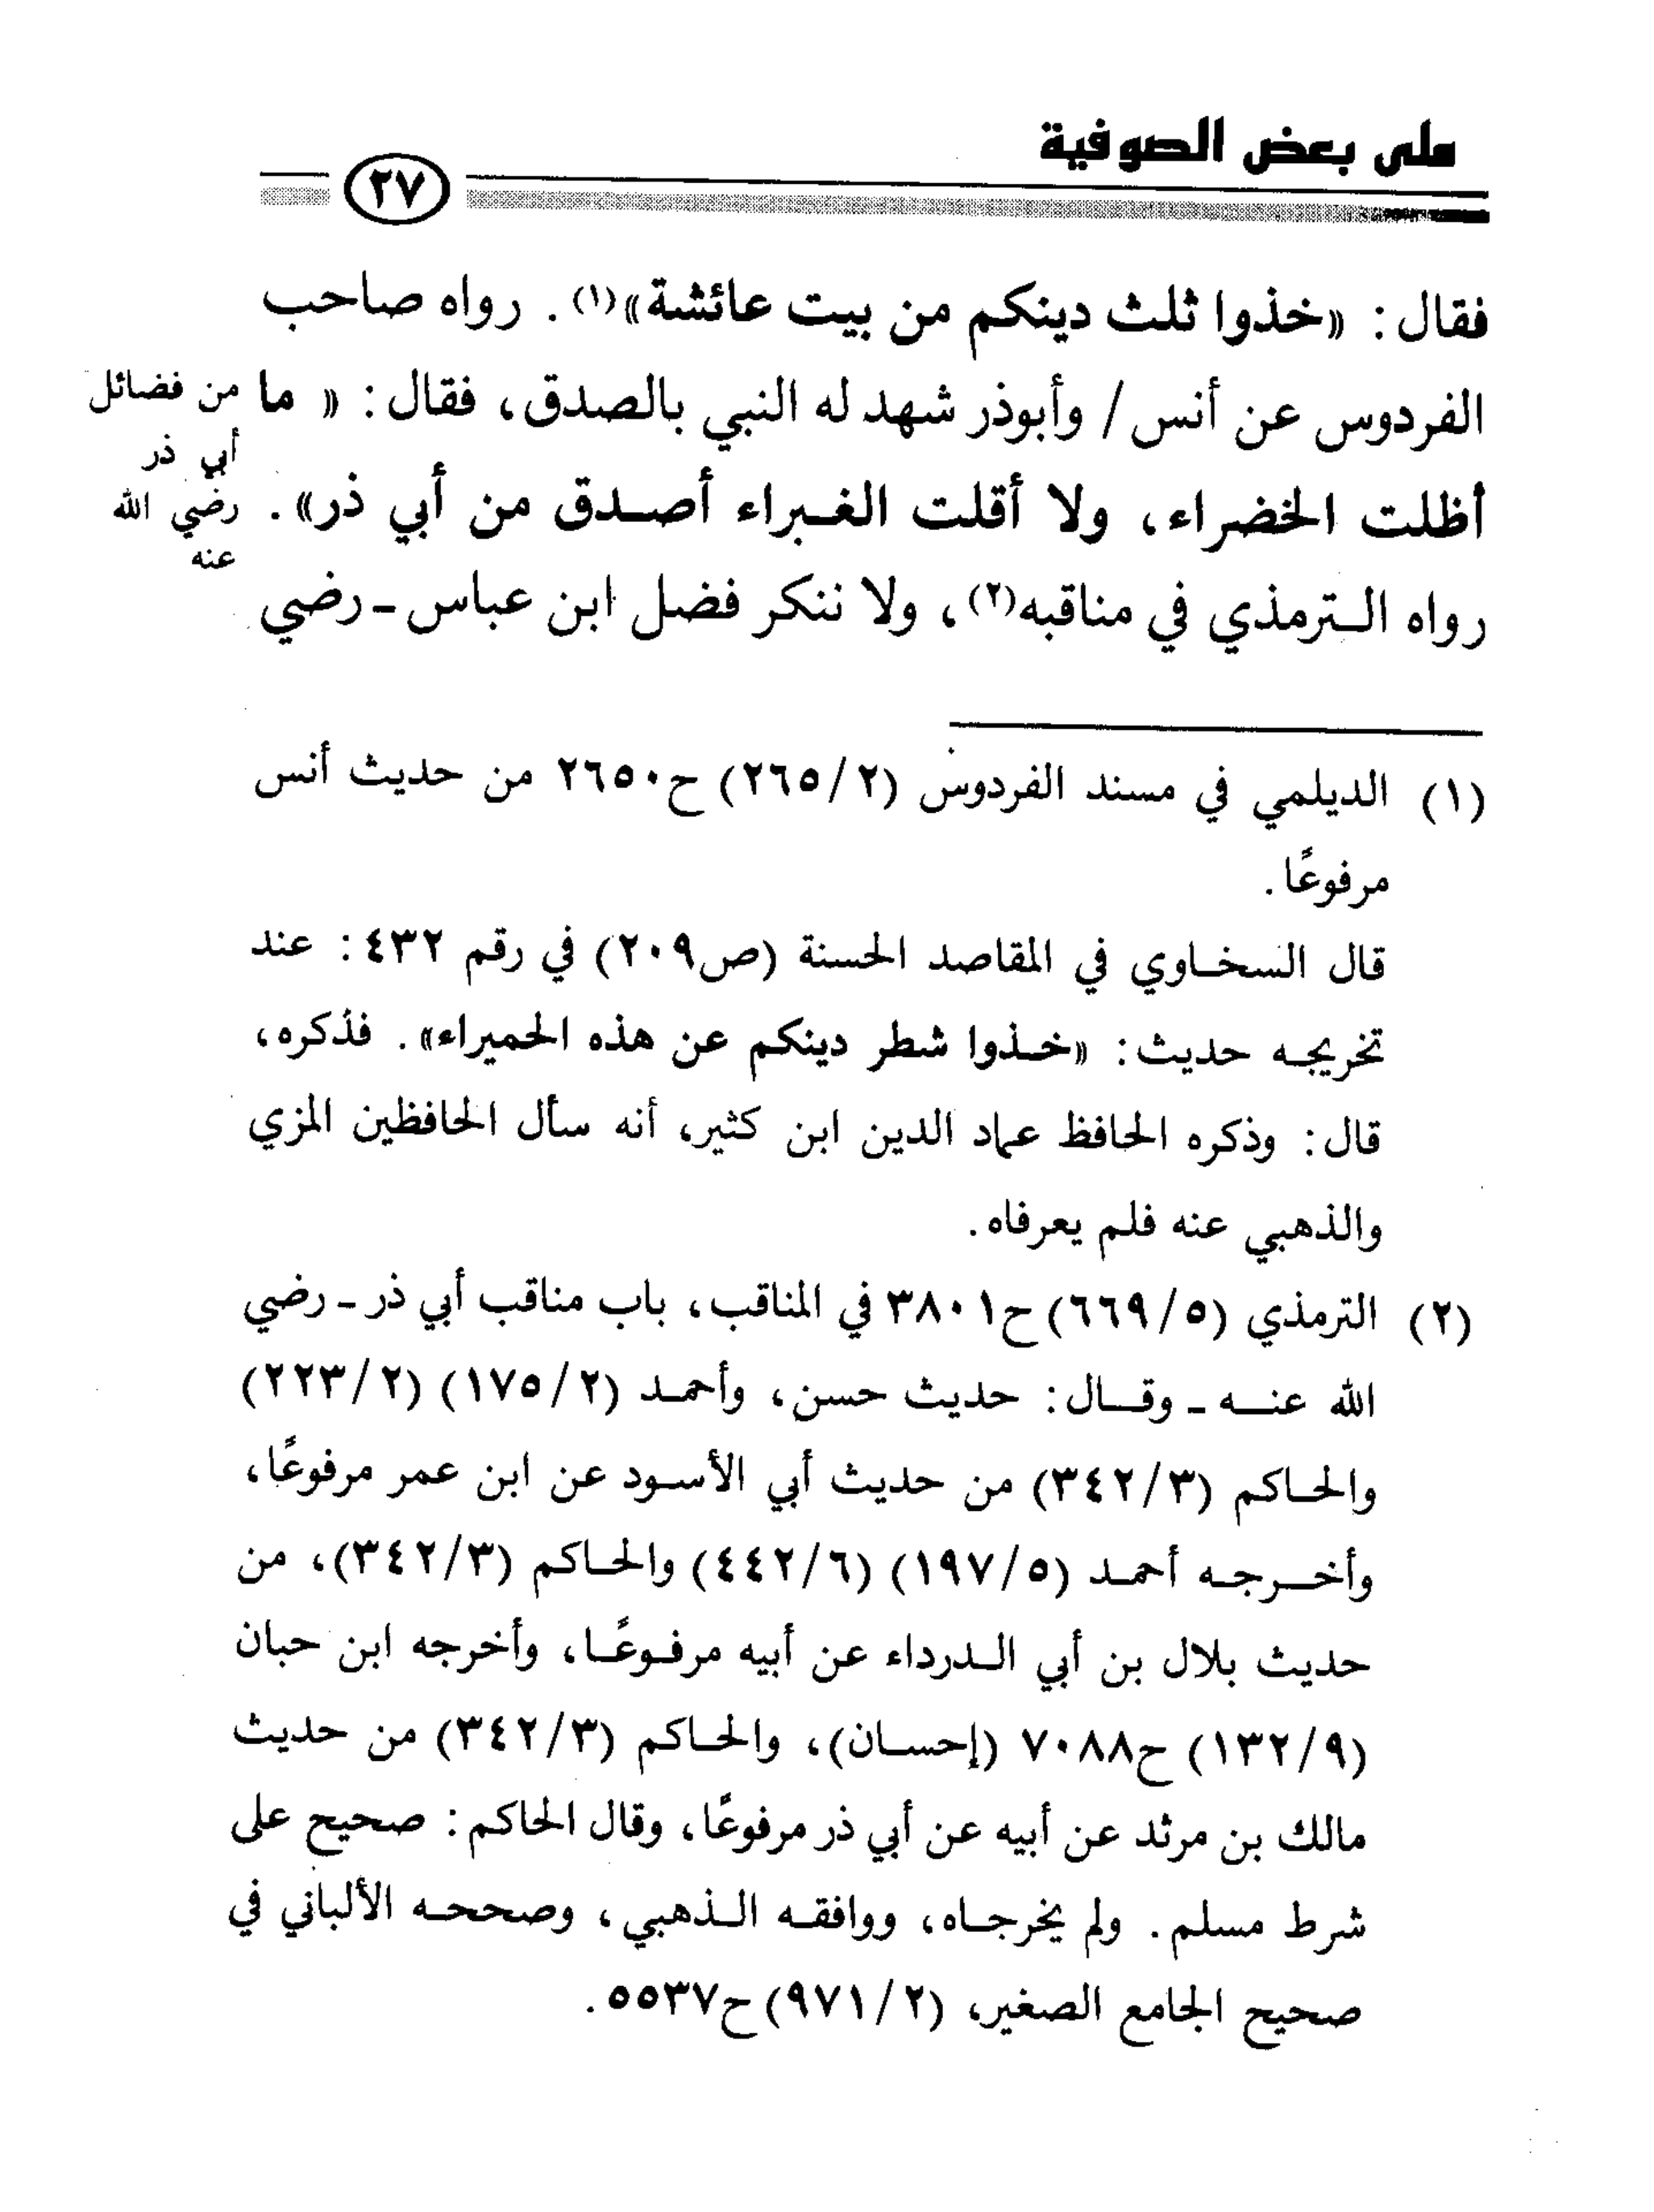 على بعض الصوفية
٢٧
فقال: «خذوا ثلث دينكم من بيت عائشة»(١). رواه صاحب
الفردوس عن أنس / وأبوذر شهد له النبي بالصدق، فقال: « ما
أظلت الخضراء، ولا أقلت الغبراء أصدق من أبي ذر».
رواه الترمذي في مناقبه(٢)، ولا ننكر فضل ابن عباس - رضي
من فضائل
أبي ذر
رضي الله
عنه
(١) الديلمي في مسند الفردوس (٢/٢٦٥) ح٢٦٥٠ من حديث أنس
مرفوعًا.
قال السخاوي في المقاصد الحسنة (ص٢٠٩) في رقم ٤٣٢: عند
تخريجه حديث: «خذوا شطر دينكم عن هذه الحميراء». فذكره،
قال: وذكره الحافظ عماد الدين ابن كثير، أنه سأل الحافظين المزي
والذهبي عنه فلم يعرفاه.
(٢) الترمذي (٥/٦٦٩) ح٣٨٠١ في المناقب، باب مناقب أبي ذر - رضي
الله عنه - وقال: حديث حسن، وأحمد (٢/١٧٥) (٢/٢٢٣)
والحاكم (٣/٣٤٢) من حديث أبي الأسود عن ابن عمر مرفوعًا،
وأخرجه أحمد (٥/١٩٧) (٦/٤٤٢) والحاكم (٣/٣٤٢)، من
حديث بلال بن أبي الدرداء عن أبيه مرفوعًا، وأخرجه ابن حبان
(٩/١٣٢) ح٧٠٨٨ (إحسان)، والحاكم (٣/٣٤٢) من حديث
مالك بن مرثد عن أبيه عن أبي ذر مرفوعًا، وقال الحاكم: صحيح على
شرط مسلم. ولم يخرجاه، ووافقه الذهبي، وصححه الألباني في
صحيح الجامع الصغير، (٢/٩٧١) ح٥٥٣٧.